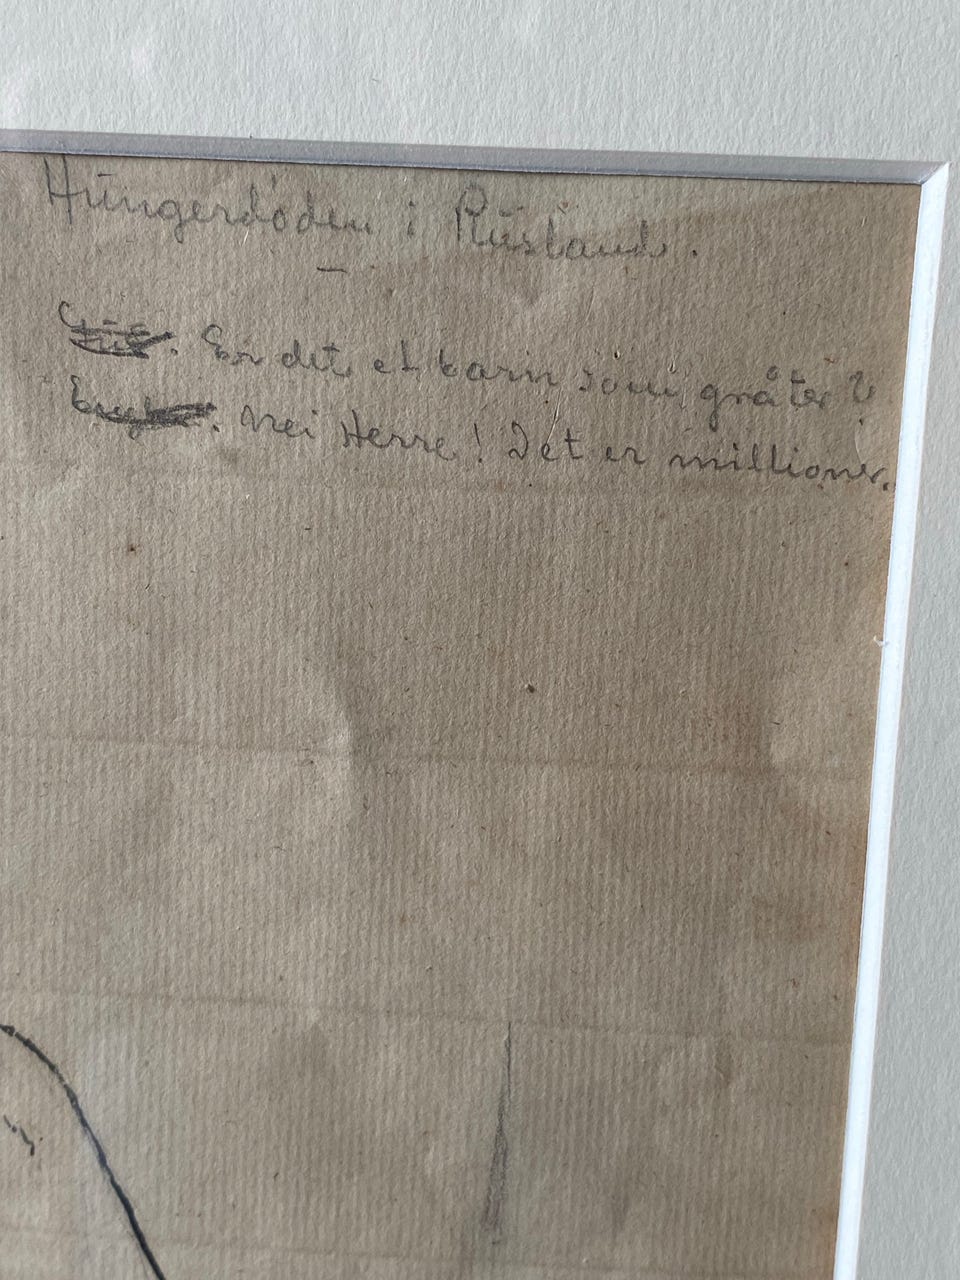 Hungerdöden i Rusland.
. Er det et barn som gråter?
. Nei Herre! Det er millioner.